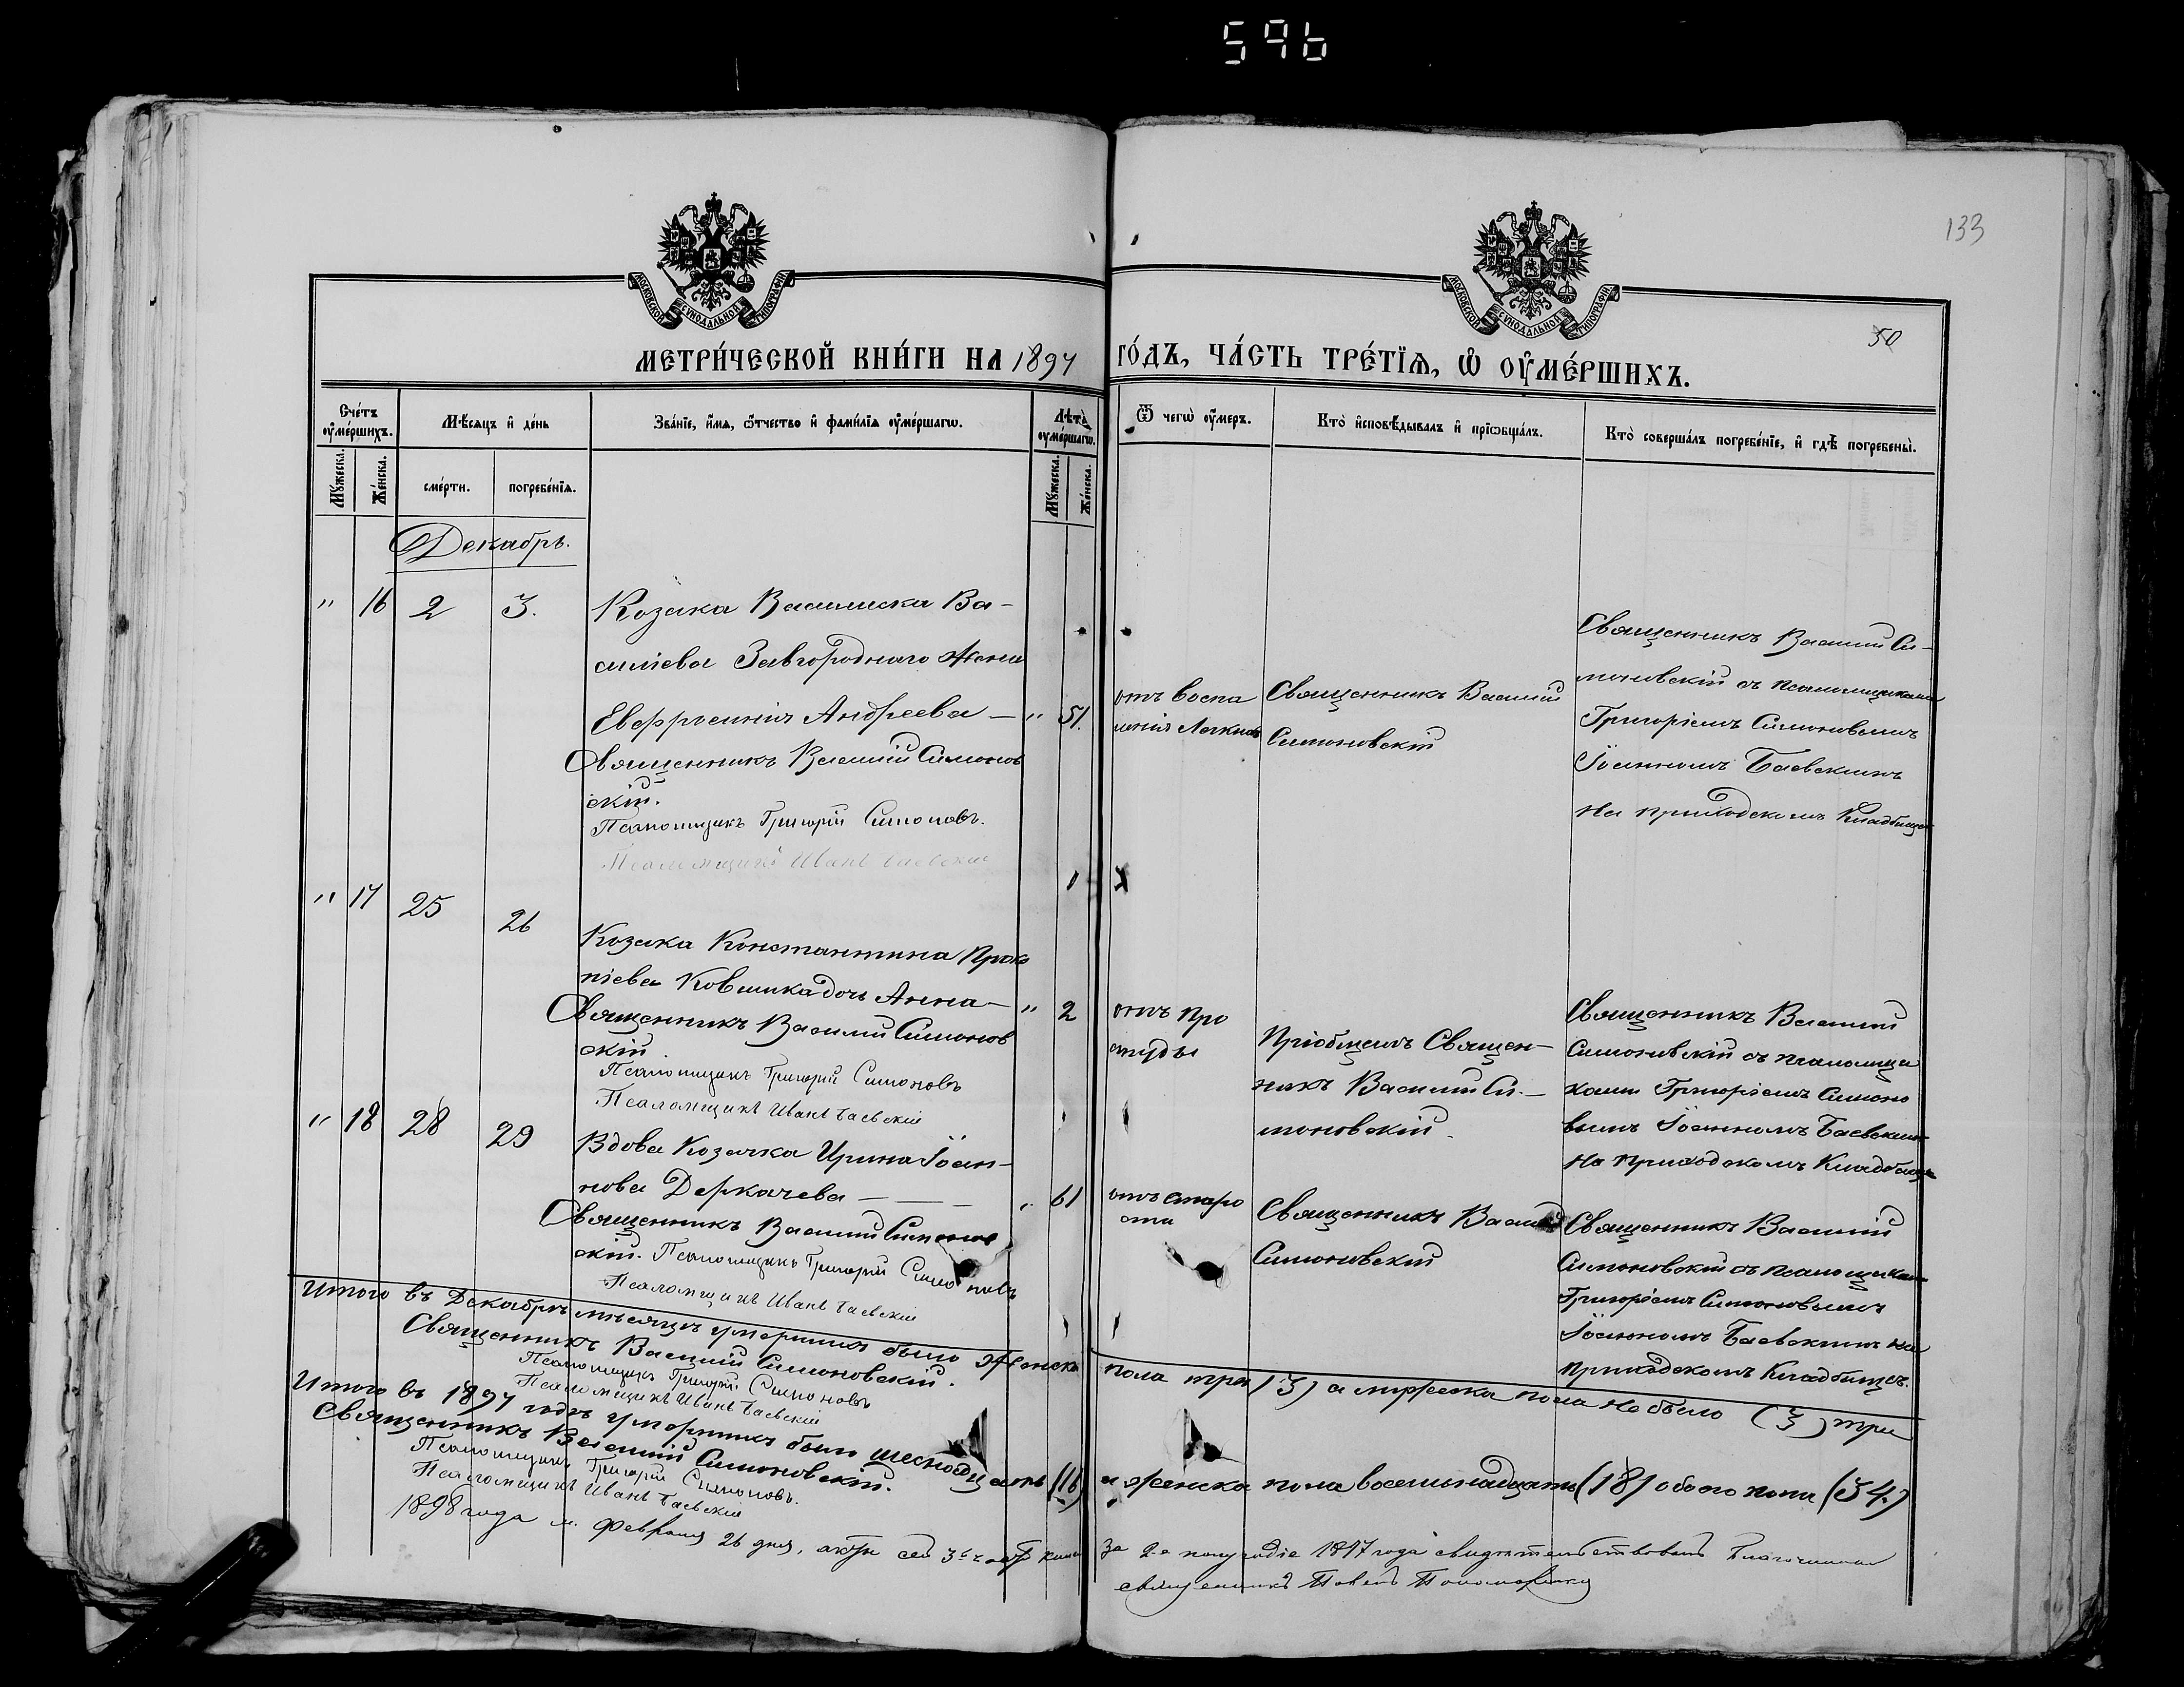 596
133
50
МОСКОВСКОЙ СѴНОДАЛЬНОЙ ТИПОГРАФІИ
МОСКОВСКОЙ СѴНОДАЛЬНОЙ ТИПОГРАФІИ
МЕТРИ́ЧЕСКОЙ КНИ́ГИ НА 1897 ГО́ДЪ, ЧА́СТЬ ТРЕ́ТЇѦ, Ѡ҆ ОУ҆МЕ́РШИХЪ.
Сче́тъ оу҆ме́ршихъ.
Мѣ́сяцъ и҆ де́нь
Зва́нїе, и҆́мѧ, ѻ҆́тчество и҆ фами́лїѧ оу҆ме́ршагѡ.
Лѣ́та оу҆ме́ршагѡ.
Ѿ чегѡ̀ оу҆́меръ.
Кто̀ и҆сповѣ́дывалъ и҆ прїѡбща́лъ.
Кто̀ соверша́лъ погребе́нїе, и҆ гдѣ̀ погребены̀.
Мꙋ́жеска.
Же́нска.
сме́рти.
погребе́нїѧ.
Мꙋ́жеска.
Же́нска.
Декабрь.
" 16 2 3.
Козака Василиска Ва-
силіева Завгороднаго жена
Евфросинія Андреева — " 51.
Священникъ Василій Симонов
скій.
Псаломщикъ Григорій Симоновъ.
Псаломщикъ Иванъ Баевскій
отъ воспа
ленія легкихъ
Священникъ Василій
Симоновскій
Священникъ Василій Си-
моновскій съ псаломщиками
Григоріемъ Симоновымъ
Іоанномъ Баевскимъ
на приходскомъ кладбищѣ
" 17 25 26
Козака Константина Проко
піева Ковшика дочь Анна — " 2
Священникъ Василій Симонов
скій.
Псаломщикъ Григорій Симоновъ
Псаломщикъ Иванъ Баевскій
отъ про
студы
Пріобщалъ Священ-
никъ Василій Си-
моновскій.
Священникъ Василій
Симоновскій съ псаломщи
ками Григоріемъ Симоно
вымъ Іоанномъ Баевскимъ
на приходскомъ кладбищѣ
" 18 28 29
Вдова Козачка Ирина Іоан-
нова Деркачева — — — " 61
Священникъ Василій Симонов
скій. Псаломщикъ Григорій Симоновъ
Псаломщикъ Иванъ Баевскій
отъ старо
сти
Священникъ Василій
Симоновскій
Священникъ Василій
Симоновскій съ псаломщиками
Григоріемъ Симоновымъ
Іоанномъ Баевскимъ на
приходскомъ кладбищѣ.
Итого въ Декабрѣ мѣсяцѣ умершихъ было женска пола три (3) а мужеска пола не было (3) три
Священникъ Василій Симоновскій.
Псаломщикъ Григорій Симоновъ
Псаломщикъ Иванъ Баевскій
Итого въ 1897 годѣ умершихъ было шеснадцать (16) а женска пола восемьнадцать (18) обоего пола (34.)
Священникъ Василій Симоновскій.
Псаломщикъ Григорій Симоновъ.
Псаломщикъ Иванъ Баевскій
1898 года м. Февраля 26 дня, актъ сей 3й части книги за 2-е полугодіе 1897 года свидѣтельствовалъ Благочинный
священникъ Павелъ